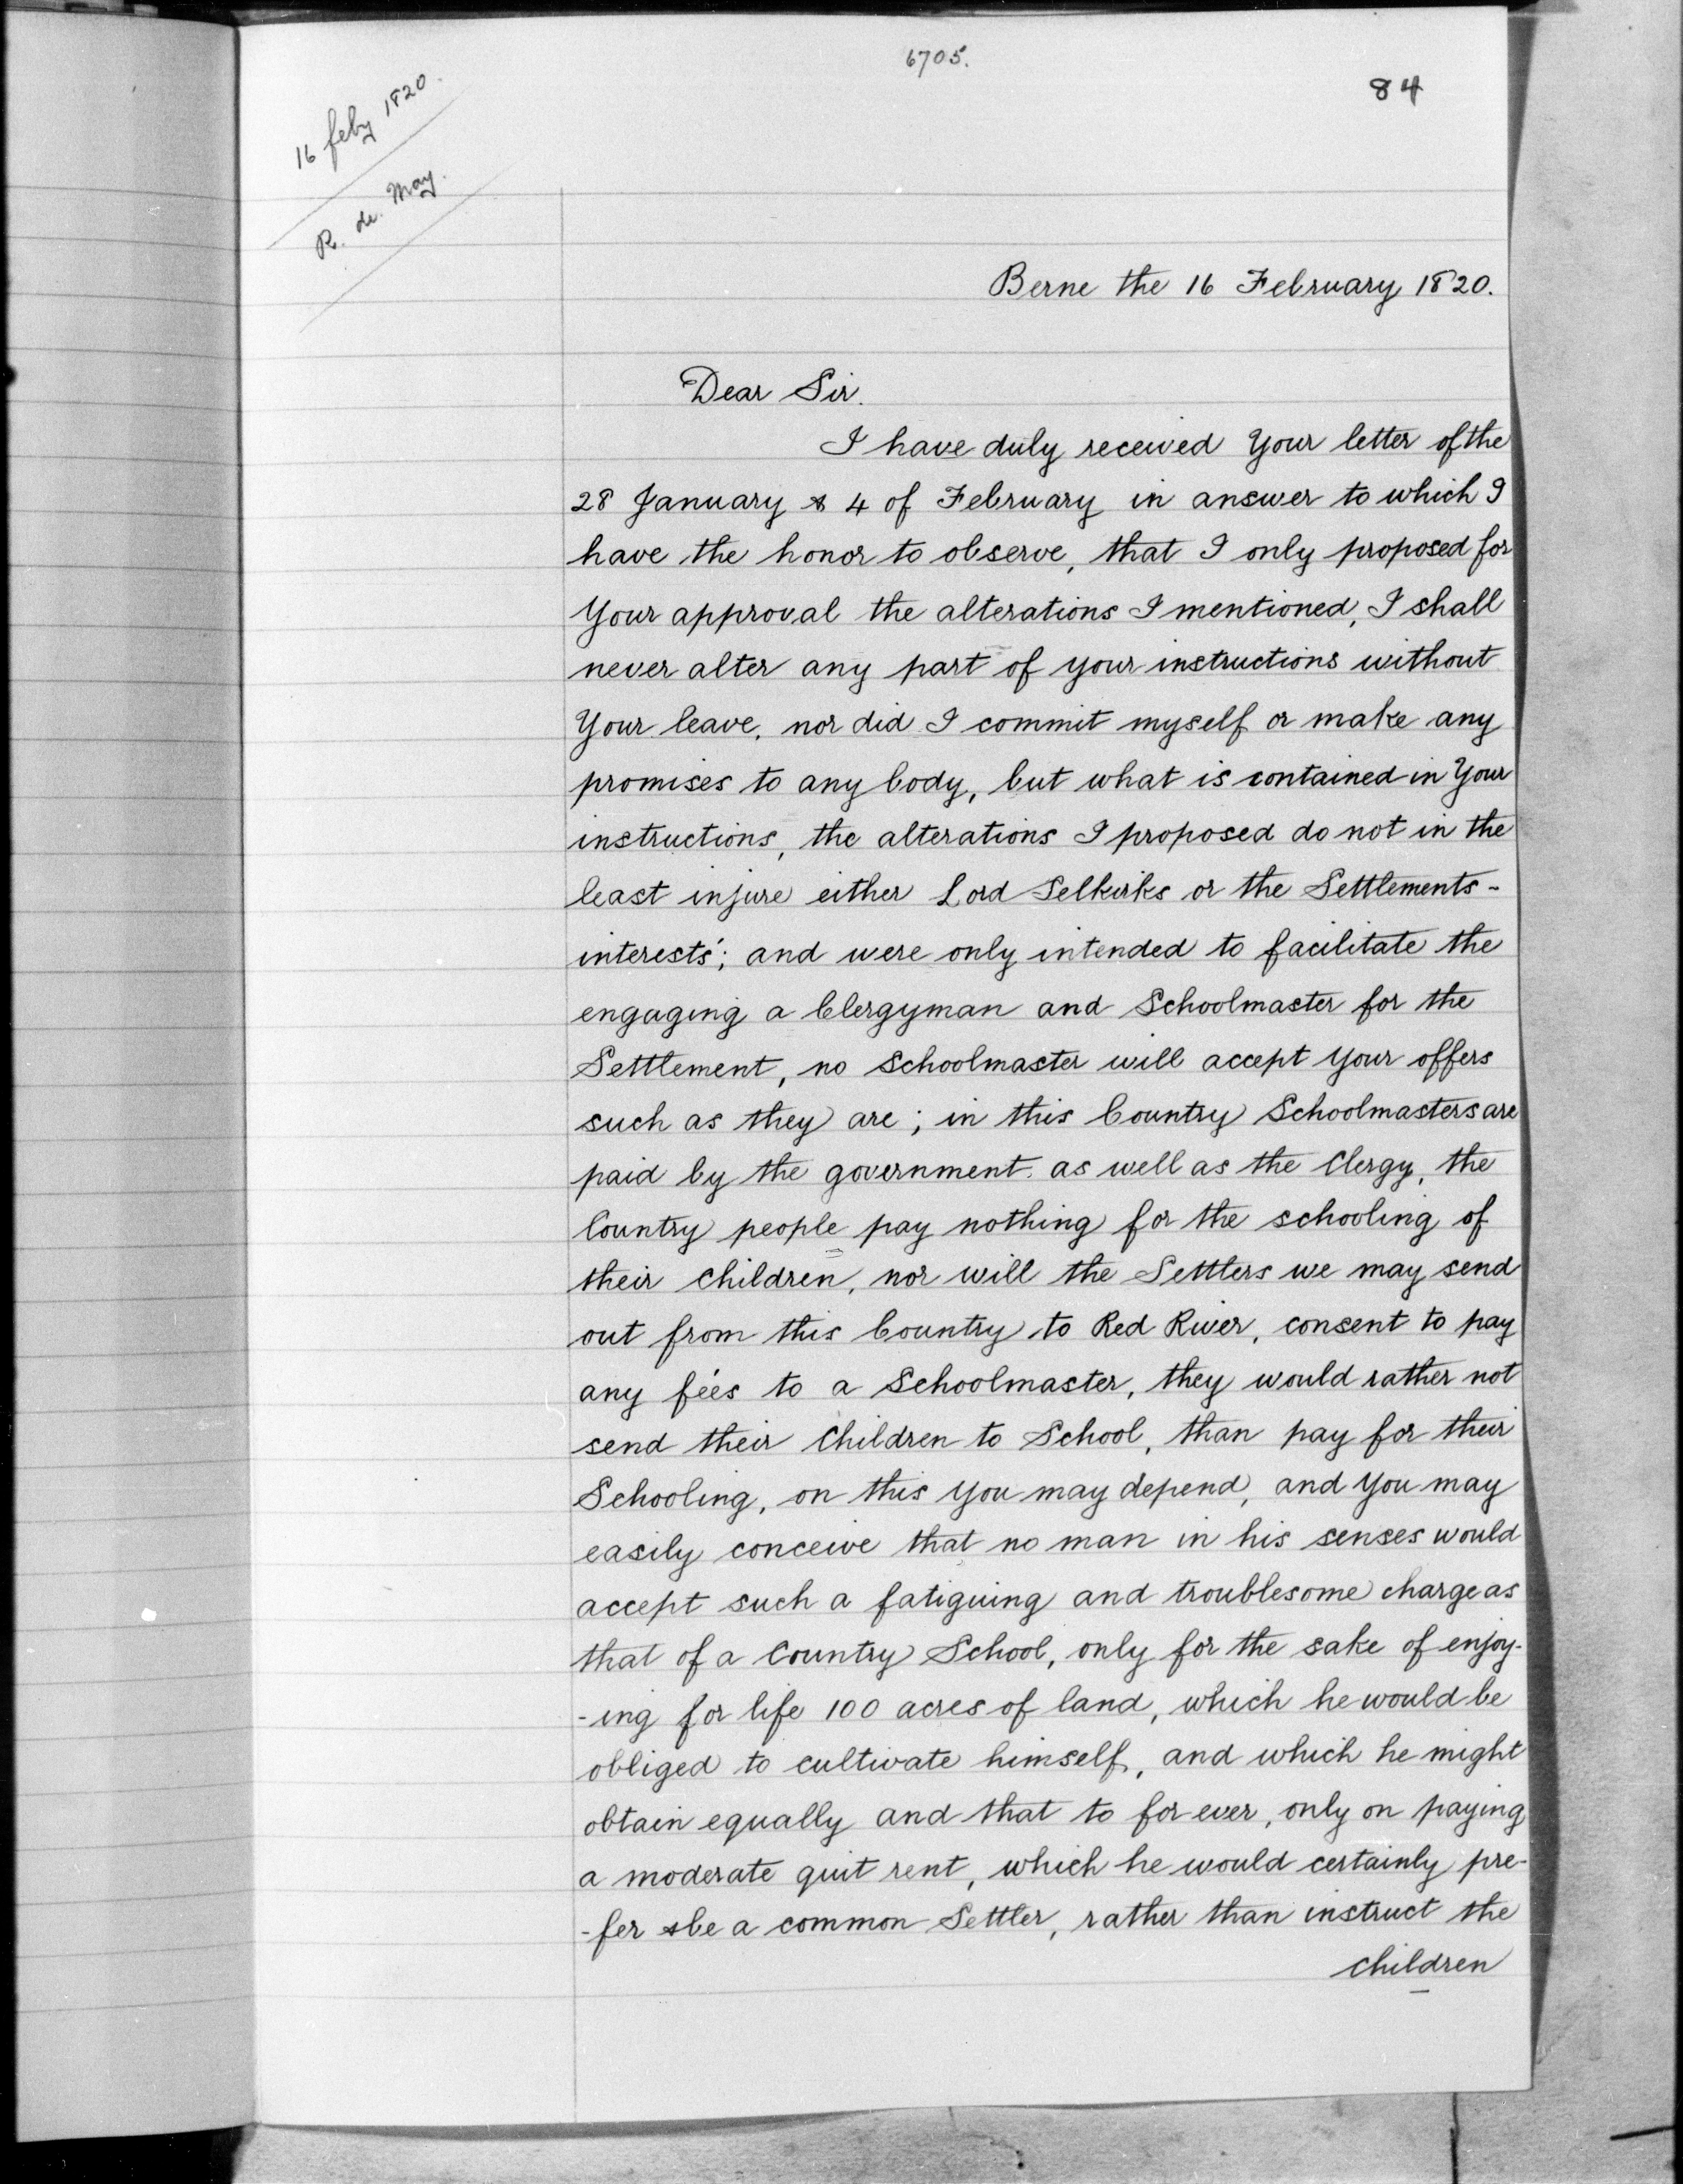 6705.
84
16 feby 1820.
R. de. May.
Berne the 16 February 1820.
Dear Sir.
I have duly received Your letter of the
28 January & 4 of February in answer to which I
have the honor to observe, that I only proposed for
Your approval the alterations I mentioned, I shall
never alter any part of your instructions without
Your leave, nor did I commit myself or make any
promises to any body, but what is contained in Your
instructions, the alterations I proposed do not in the
least injure either Lord Selkirks or the Settlements-
interests'; and were only intended to facilitate the
engaging a Clergyman and Schoolmaster for the
Settlement, no Schoolmaster will accept Your offers
such as they are; in this Country Schoolmasters are
paid by the government. as well as the Clergy, the
Country people pay nothing for the schooling of
their Children, nor will the Settlers we may send
out from this Country to Red River, consent to pay
any fées to a Schoolmaster, they would rather not
send their Children to School, than pay for their
Schooling, on this You may depend, and You may
easily conceive that no man in his senses would
accept such a fatiguing and troublesome charge as
that of a Country School, only for the sake of enjoy-
-ing for life 100 acres of land, which he would be
obliged to cultivate himself, and which he might
obtain equally and that to for ever, only on paying
a moderate quit rent, which he would certainly pre-
-fer & be a common Settler, rather than instruct the
Children